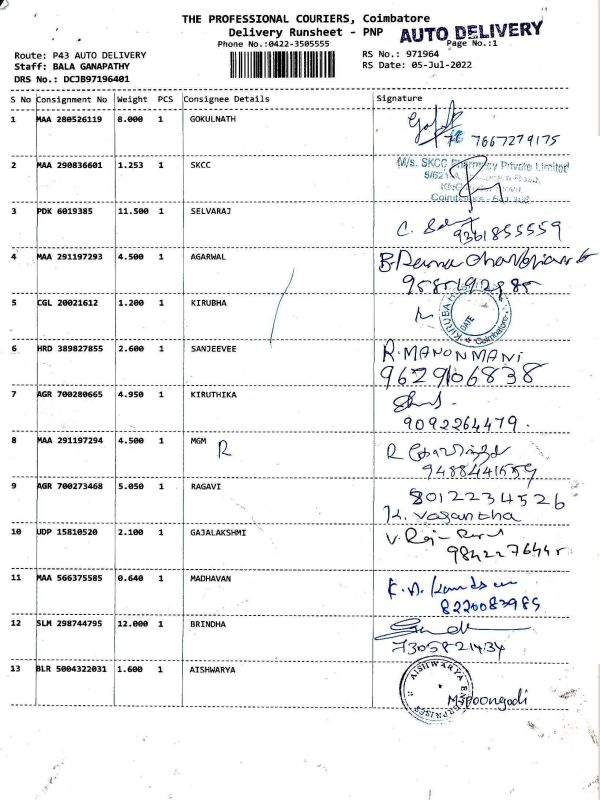 THE PROFESSIONAL COURIERS, Coimbatore
Delivery Runsheet - PNP
AUTO DELIVERY
Phone No.:0422-3505555
Page No.:1
Route: P43 AUTO DELIVERY
RS No.: 971964
Staff: BALA GANAPATHY
RS Date: 05-Jul-2022
DRS No.: DCJB97196401
S No Consignment No Weight PCS Consignee Details Signature
1 MAA 280526119 8.000 1 GOKULNATH
7667279175
2 MAA 290836601 1.253 1 SKCC
M/s. SKCC Pharmacy Private Limited
3 PDK 6019385 11.500 1 SELVARAJ
9361855559
4 MAA 291197293 4.500 1 AGARWAL
5 CGL 20021612 1.200 1 KIRUBHA
KIRUBA
DATE
Coimbatore
6 HRD 389827855 2.600 1 SANJEEVEE
R. MANONMANI
9629106838
7 AGR 700280665 4.950 1 KIRUTHIKA
9092264479.
8 MAA 291197294 4.500 1 MGM
R
9488441559
9 AGR 700273468 5.050 1 RAGAVI
8012234526
K. Vasantha
10 UDP 15810520 2.100 1 GAJALAKSHMI
11 MAA 566375585 0.640 1 MADHAVAN
8220083985
12 SLM 298744795 12.000 1 BRINDHA
7305821434
13 BLR 5004322031 1.600 1 AISHWARYA
AISHWARYA ENTERPRISES
M.Spoongodi